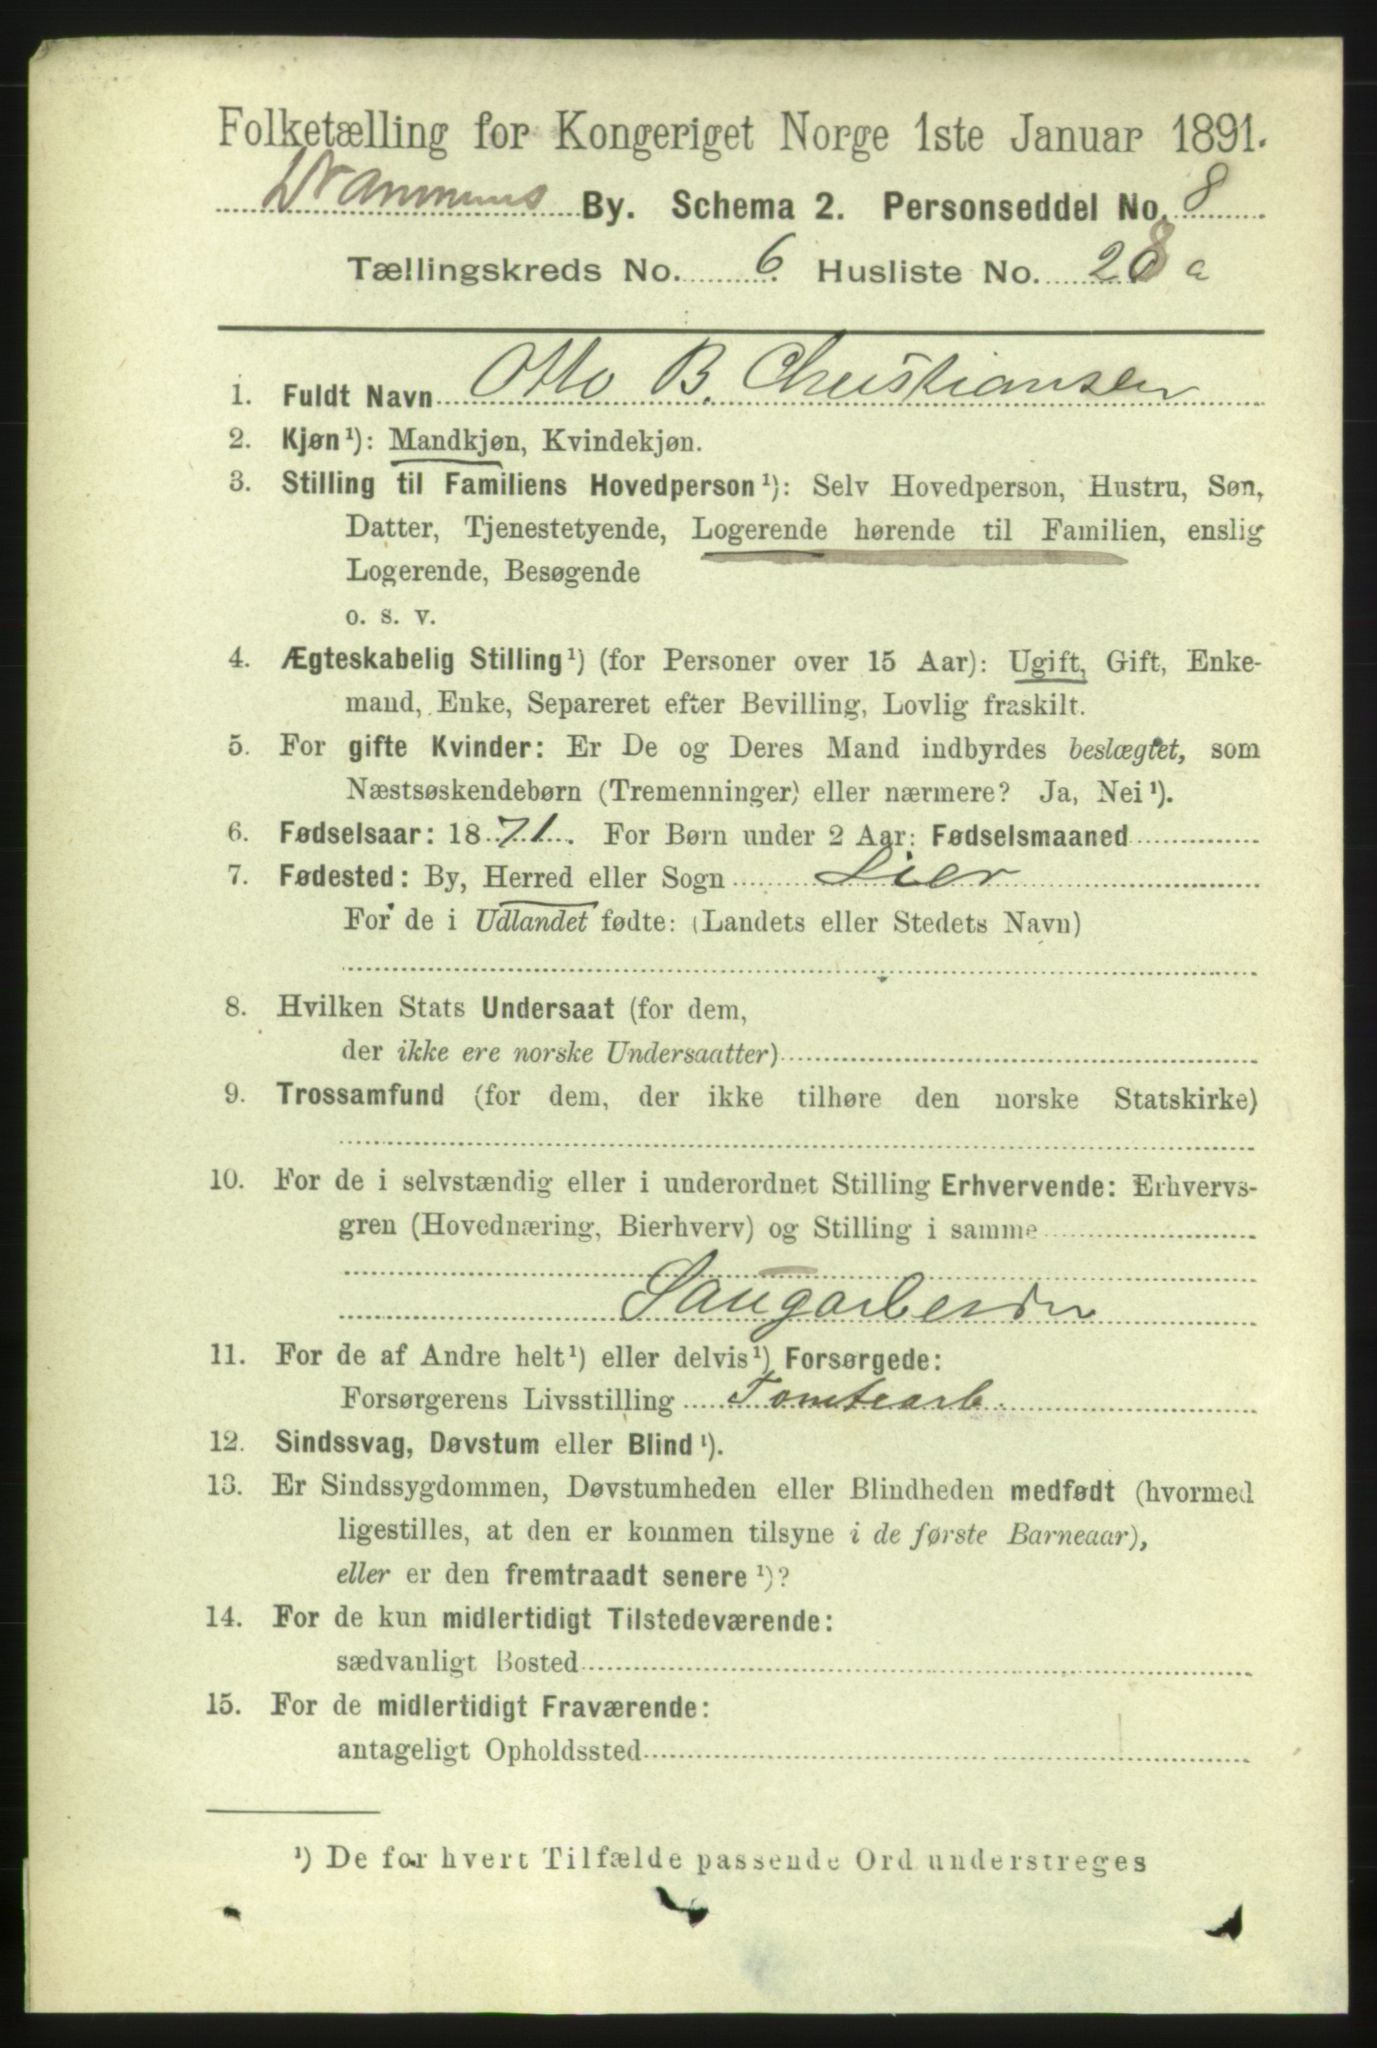 Folketælling for Kongeriget Norge 1ste Januar 1891.
Drammens By. Schema 2. Personseddel No. 8
Tællingskreds No. 6 Husliste No. 28 a
1. Fuldt Navn Otto B. Christiansen
2. Kjøn¹): Mandkjøn, Kvindekjøn.
3. Stilling til Familiens Hovedperson¹): Selv Hovedperson, Hustru, Søn,
Datter, Tjenestetyende, Logerende hørende til Familien, enslig
Logerende, Besøgende
o. s. v.
4. Ægteskabelig Stilling¹) (for Personer over 15 Aar): Ugift, Gift, Enke-
mand, Enke, Separeret efter Bevilling, Lovlig fraskilt.
5. For gifte Kvinder: Er De og Deres Mand indbyrdes beslægtet, som
Næstsøskendebørn (Tremenninger) eller nærmere? Ja, Nei¹).
6. Fødselsaar: 1871. For Børn under 2 Aar: Fødselsmaaned
7. Fødested: By, Herred eller Sogn Lier
For de i Udlandet fødte: (Landets eller Stedets Navn)
8. Hvilken Stats Undersaat (for dem,
der ikke ere norske Undersaatter)
9. Trossamfund (for dem, der ikke tilhøre den norske Statskirke)
10. For de i selvstændig eller i underordnet Stilling Erhvervende: Erhvervs-
gren (Hovednæring, Bierhverv) og Stilling i samme
Saugarbeider
11. For de af Andre helt¹) eller delvis¹) Forsørgede:
Forsørgerens Livsstilling Tomtearb.
12. Sindssvag, Døvstum eller Blind¹).
13. Er Sindssygdommen, Døvstumheden eller Blindheden medfødt (hvormed
ligestilles, at den er kommen tilsyne i de første Barneaar),
eller er den fremtraadt senere¹)?
14. For de kun midlertidigt Tilstedeværende:
sædvanligt Bosted
15. For de midlertidigt Fraværende:
antageligt Opholdssted
¹) De for hvert Tilfælde passende Ord understreges